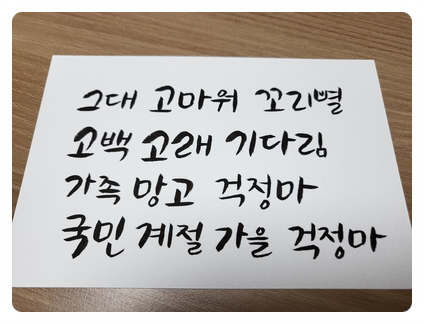 그대 고마워 꼬리별
고백 고래 기다림
가족 망고 걱정마
국민 계절 가을 걱정마